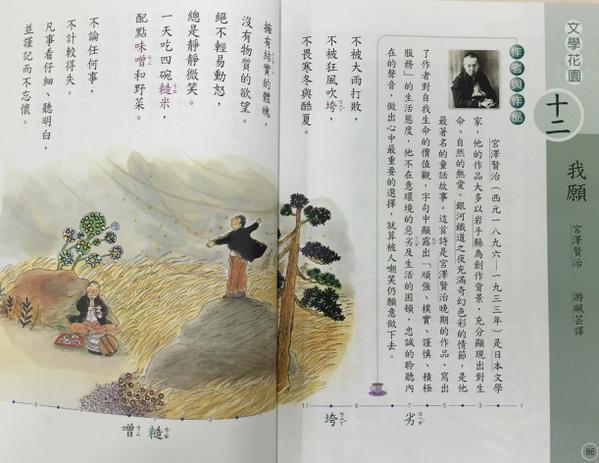 文學花園
十二
我願
宮澤賢治
游珮芸譯
作者與作品
宮澤賢治（西元一八九六—一九三三年）是日本文學
家，他的作品大多以岩手縣為創作背景，充分顯現出對生
命、自然的熱愛。銀河鐵道之夜充滿奇幻色彩的情節，是他
最著名的童話故事。這首詩是宮澤賢治晚期的作品，寫出
了作者對自我生命的價值觀，字句中顯露出「頑強、樸實、謹慎、積極
服務」的生活態度，他不在意環境的惡劣及生活的困頓，忠誠的聆聽內
在的聲音，做出心中最重要的選擇，就算被人嘲笑仍願意做下去。
不被大雨打敗，
不被狂風吹垮，
不畏寒冬與酷夏。
劣
垮
86
擁有結實的體魄，
沒有物質的欲望。
絕不輕易動怒，
總是靜靜微笑。
一天吃四碗糙米，
配點味噌和野菜。
不論任何事，
不計較得失。
凡事看仔細、聽明白，
並謹記而不忘懷。
糙
噌